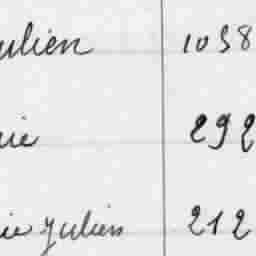 ulien 1058
ie 292
ie Julien 212